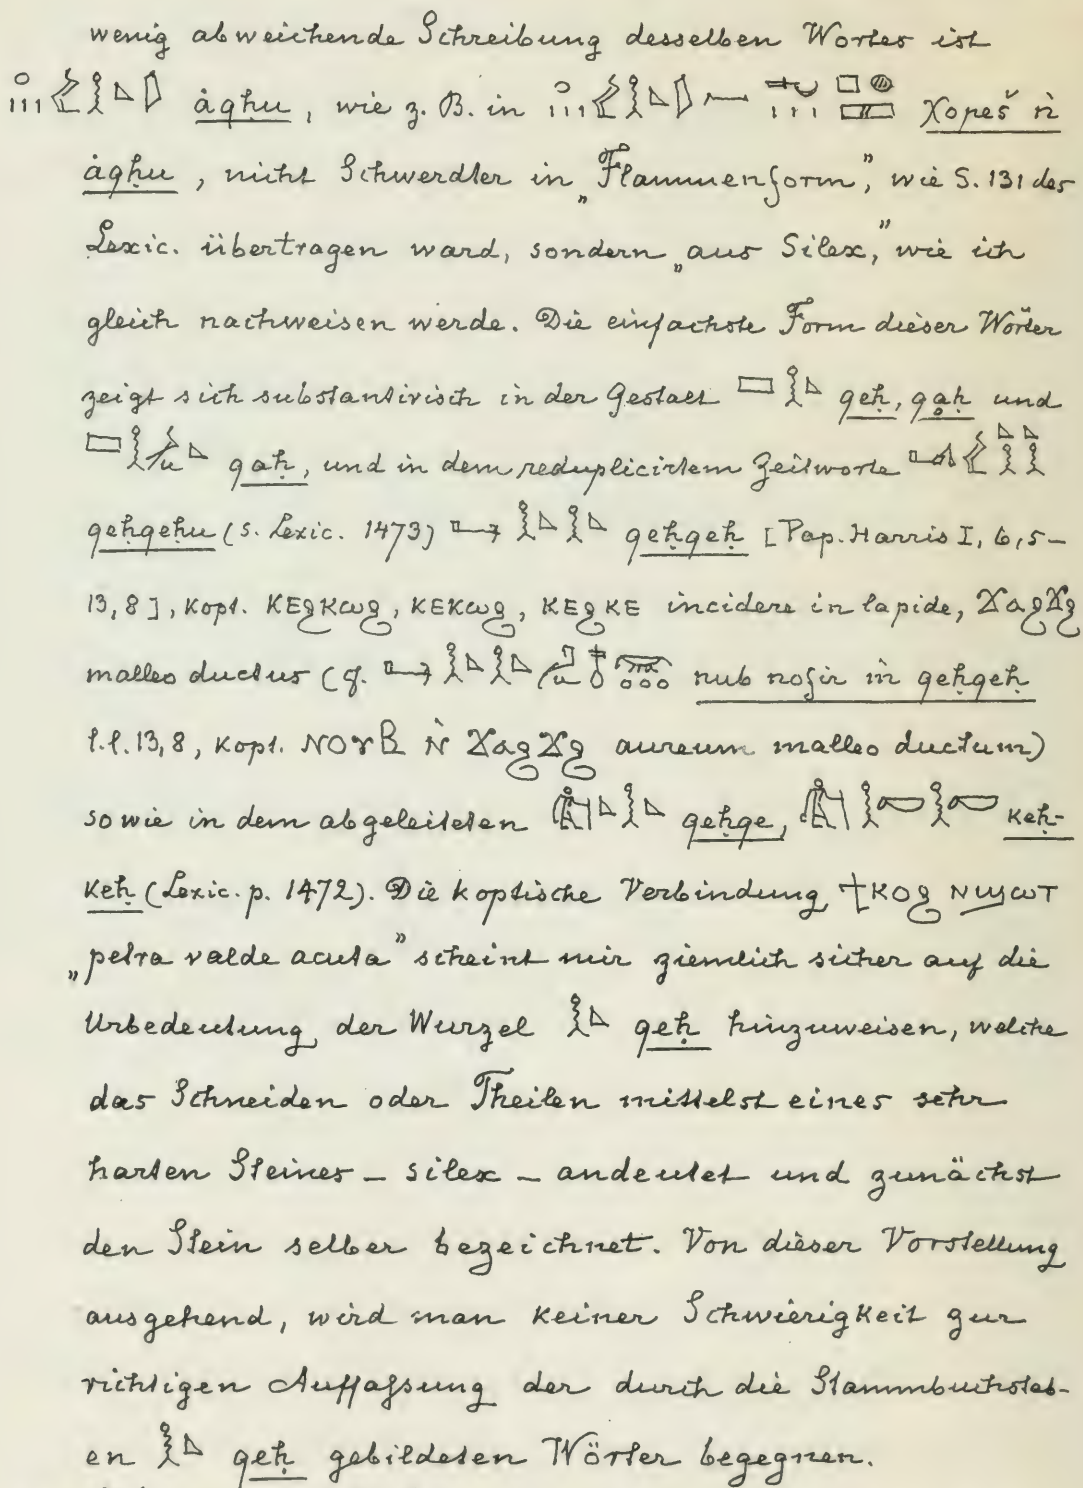 wenig abweichende Schreibung desselben Wortes ist
ȧqḥu, wie z. B. in χopeš ṅ
ȧqḥu, nicht Schwerdter in „Flammenform", wie S. 131 des
Lexic. übertragen ward, sondern „aus Silex," wie ich
gleich nachweisen werde. Die einfachste Form dieser Wörter
zeigt sich substantivisch in der Gestalt qeḥ, qạḥ und
qaḥ, und in dem reduplicirtem Zeitworte
qeḥqeḥu (s. Lexic. 1473) qeḥqeḥ [Pap. Harris I, 6,5–
13,8], Kopt. ⲕⲉϩⲕⲱϩ, ⲕⲉⲕⲱϩ, ⲕⲉϩⲕⲉ incidere in lapide, ϫⲁϩϫϩ
malleo ductus (cf. nub nofir ṁ qeḥqeḥ
l.l. 13,8, Kopt. ⲛⲟⲩⲃ ⲛ̀ ϫⲁϩϫϩ aureum malleo ductum)
sowie in dem abgeleiteten qeḥqe, keḥ-
keḥ (Lexic. p. 1472). Die koptische Verbindung ϯⲕⲟϩ ⲛϣⲱⲧ
„petra valde acuta" scheint mir ziemlich sicher auf die
Urbedeutung der Wurzel qeḥ hinzuweisen, welche
das Schneiden oder Theilen mittelst eines sehr
harten Steines – silex – andeutet und zunächst
den Stein selber bezeichnet. Von dieser Vorstellung
ausgehend, wird man keiner Schwierigkeit zur
richtigen Auffassung der durch die Stammbuchstab-
en qeḥ gebildeten Wörter begegnen.